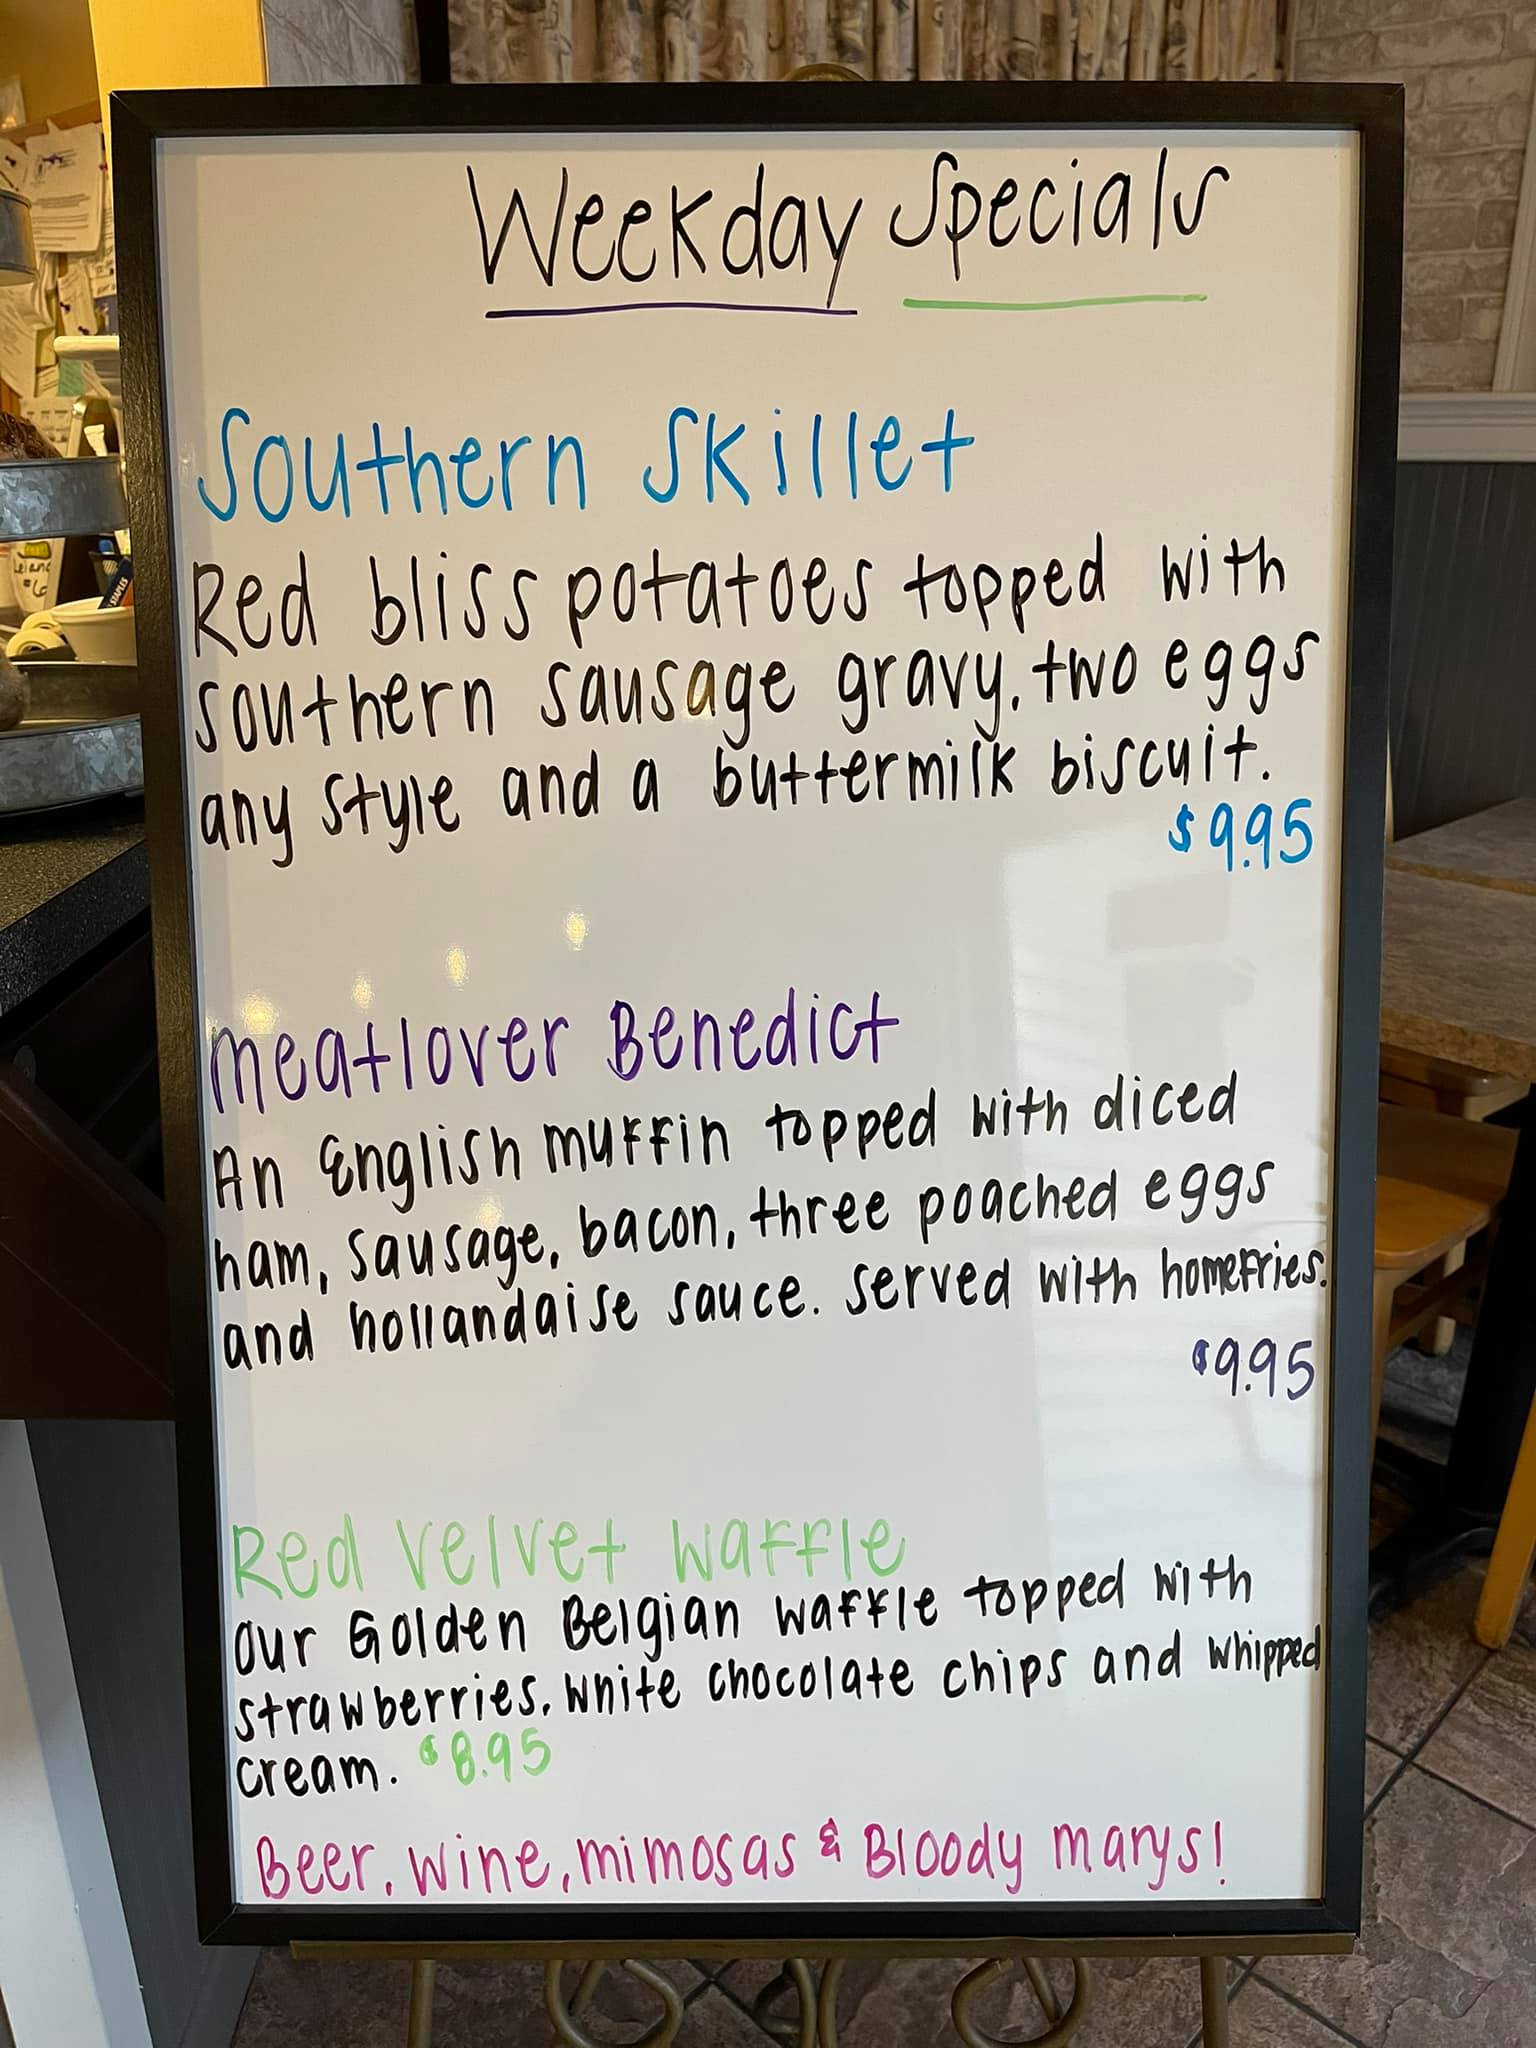 Weekday Specials
Southern Skillet
Red bliss potatoes topped with
southern sausage gravy, two eggs
any style and a buttermilk biscuit.
$9.95
Meatlover Benedict
An English muffin topped with diced
ham, sausage, bacon, three poached eggs
and hollandaise sauce. Served with homefries.
$9.95
Red Velvet Waffle
Our Golden Belgian Waffle topped with
strawberries, white chocolate chips and whipped
cream. $8.95
Beer, wine, mimosas & Bloody marys!
STAPLES